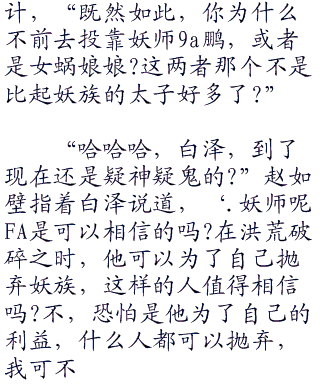 计，“既然如此，你为什么
不前去投靠妖师9a鹏，或者
是女蜗娘娘?这两者那个不是
比起妖族的太子好多了?”
“哈哈哈，白泽，到了
现在还是疑神疑鬼的?”赵如
壁指着白泽说道，‘.妖师呢
FA是可以相信的吗?在洪荒破
碎之时，他可以为了自己抛
弃妖族，这样的人值得相信
吗?不，恐怕是他为了自己的
利益，什么人都可以抛弃，
我可不